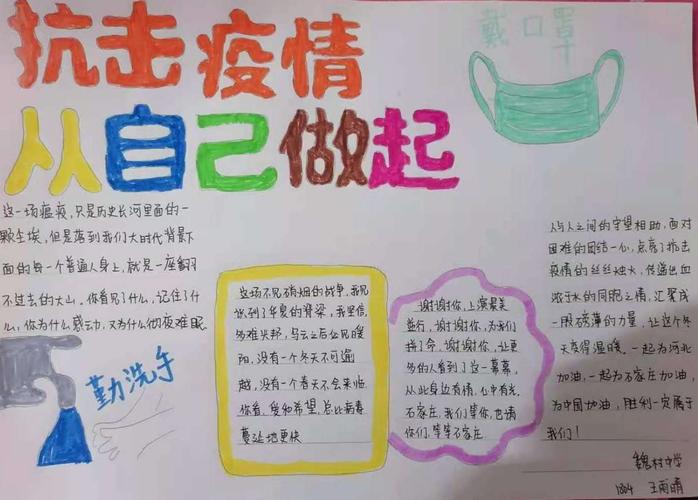 抗击疫情
从自己做起
戴口罩
这一场瘟疫,只是历史长河里面的一
颗尘埃,但是落到我们大时代背景下
面的每一个普通人身上,就是一座翻
不过去的大山。你看见了什么,记住了什
么,你为什么感动,又为什么彻夜难眠
勤洗手
这场不见硝烟的战争,我见
识到了华夏的脊梁,我坚信,
多难兴邦,乌云之后必见暖
阳,没有一个冬天不可逾
越,没有一个春天不会来临
你看,爱和希望,总比病毒
蔓延地更快
谢谢你,上演最美
逆行,谢谢你,为我们
拼了命,谢谢你,让更
多的人看到了这一幕幕,
从此身边有情,心中有光,
石家庄,我们等你,也请
你们,等等石家庄
人与人之间的守望相助,面对
困难的团结一心,点亮了抗击
疫情的丝丝烛火,传递出血
浓于水的同胞之情,汇聚成
一股磅礴的力量,让这个冬
天变得温暖。一起为河北
加油,一起为石家庄加油,
为中国加油,胜利一定属于
我们!
魏村中学
1884 王雨晴